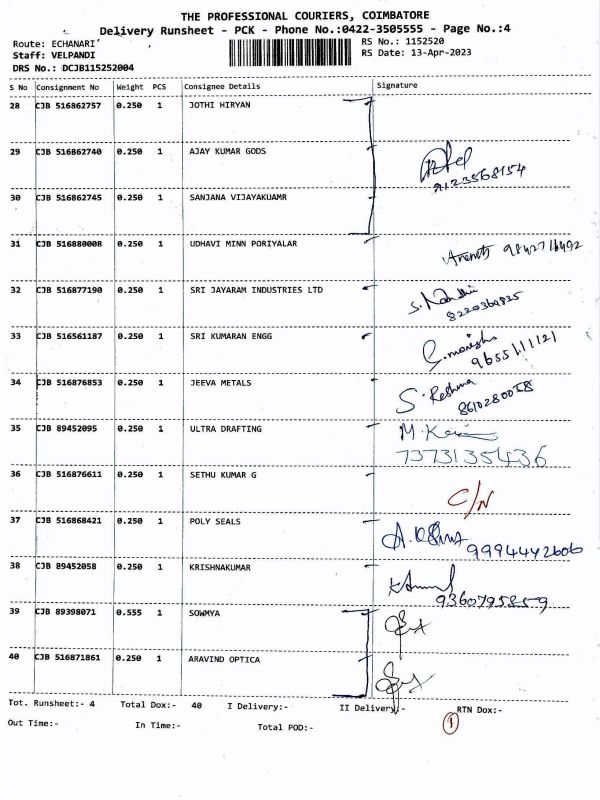 THE PROFESSIONAL COURIERS, COIMBATORE
Delivery Runsheet - PCK - Phone No.:0422-3505555 - Page No.:4
Route: ECHANARI
RS No.: 1152520
Staff: VELPANDI
RS Date: 13-Apr-2023
DRS No.: DCJB115252004
S No Consignment No Weight PCS Consignee Details Signature
28 CJB 516862757 0.250 1 JOTHI HIRYAN
29 CJB 516862740 0.250 1 AJAY KUMAR GODS
9123568154
30 CJB 516862745 0.250 1 SANJANA VIJAYAKUAMR
31 CJB 516880008 0.250 1 UDHAVI MINN PORIYALAR
9842716492
32 CJB 516877190 0.250 1 SRI JAYARAM INDUSTRIES LTD
8220369825
33 CJB 516561187 0.250 1 SRI KUMARAN ENGG
9655111121
34 CJB 516876853 0.250 1 JEEVA METALS S. Reshma
8610280058
35 CJB 89452095 0.250 1 ULTRA DRAFTING
7373135436
36 CJB 516876611 0.250 1 SETHU KUMAR G
C/N
37 CJB 516868421 0.250 1 POLY SEALS
9994442606
38 CJB 89452058 0.250 1 KRISHNAKUMAR
9360795859
39 CJB 89398071 0.555 1 SOWMYA
40 CJB 516871861 0.250 1 ARAVIND OPTICA
Tot. Runsheet:- 4 Total Dox:- 40 I Delivery:- II Delivery:- RTN Dox:-
Out Time:- In Time:- Total POD:- 1